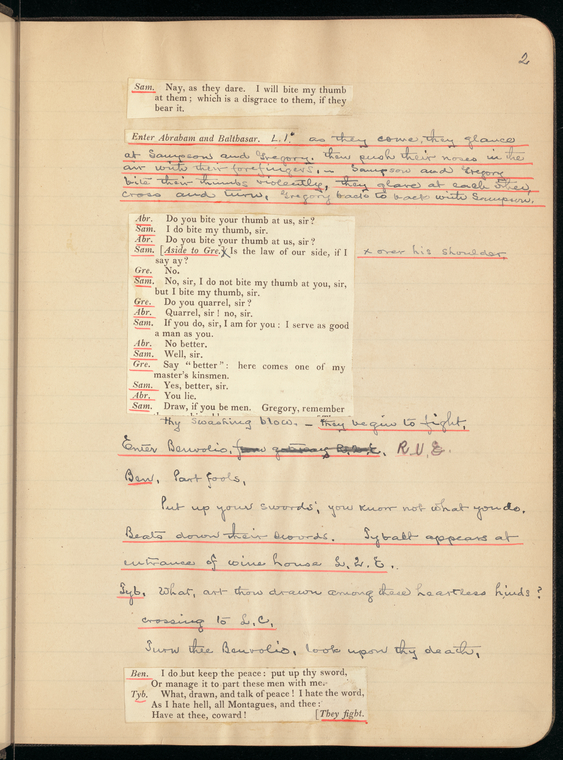 2
Sam. Nay, as they dare. I will bite my thumb
at them; which is a disgrace to them, if they
bear it.
Enter Abraham and Balthasar. L.1. as they come, they glance
at Sampson and Gregory, then push their noses in the
air with their forefingers. – Sampson and Gregory
bite their thumbs violently, they glare at each other,
cross and turn, Gregory back to back with Sampson.
Abr. Do you bite your thumb at us, sir?
Sam. I do bite my thumb, sir.
Abr. Do you bite your thumb at us, sir?
Sam. [Aside to Gre.]x Is the law of our side, if I
say ay?
x over his shoulder
Gre. No.
Sam. No, sir, I do not bite my thumb at you, sir,
but I bite my thumb, sir.
Gre. Do you quarrel, sir?
Abr. Quarrel, sir! no, sir.
Sam. If you do, sir, I am for you: I serve as good
a man as you.
Abr. No better.
Sam. Well, sir.
Gre. Say "better": here comes one of my
master's kinsmen.
Sam. Yes, better, sir.
Abr. You lie.
Sam. Draw, if you be men. Gregory, remember
thy swashing blow. – They begin to fight,
Enter Benvolio, from gateway R.U.E.
Ben. Part fools,
Put up your swords; you know not what you do.
Beats down their swords. Tybalt appears at
entrance of wine house L.2.E.
Tyb. What, art thou drawn among these heartless hinds?
crossing to L.C.
Turn thee Benvolio, look upon thy death,
Ben. I do but keep the peace: put up thy sword,
Or manage it to part these men with me.
Tyb. What, drawn, and talk of peace! I hate the word,
As I hate hell, all Montagues, and thee:
Have at thee, coward! [They fight.